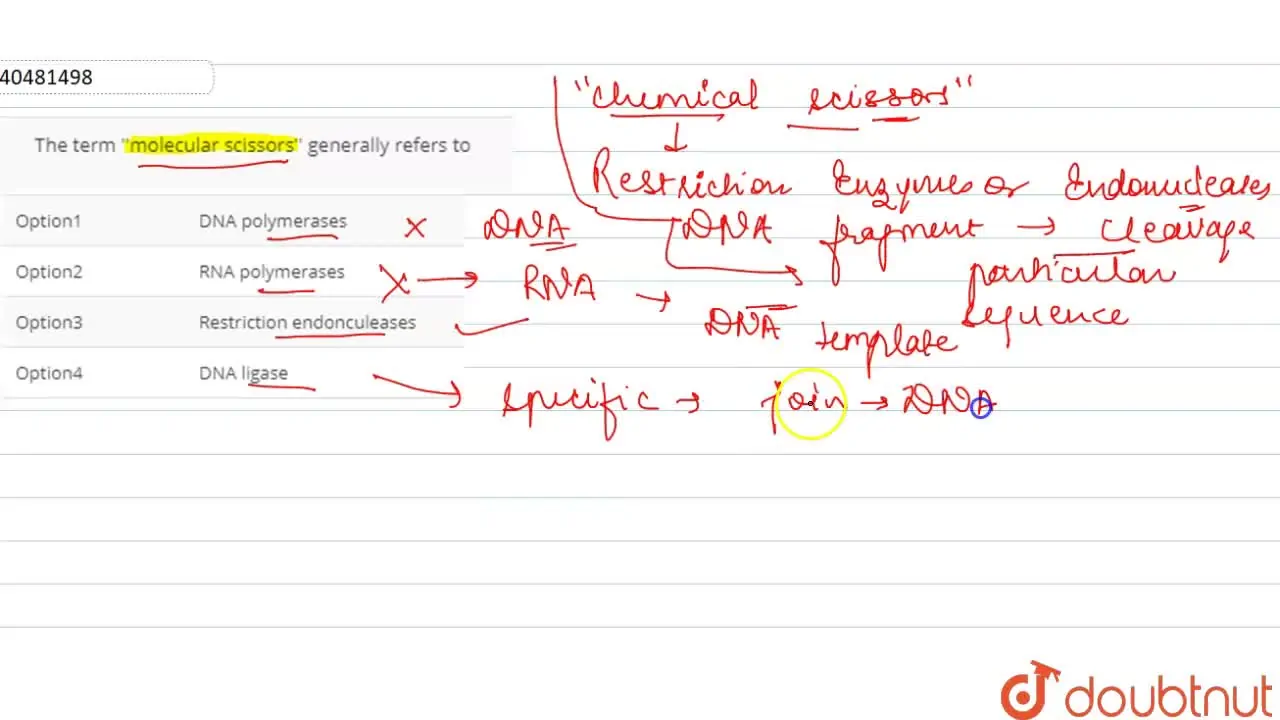 40481498
"chemical scissors"
The term "molecular scissors" generally refers to
Restriction Enzymes or Endonucleases
Option1 DNA polymerases x DNA DNA fragment → cleavage
particular
Option2 RNA polymerases x → RNA →
sequence
Option3 Restriction endonculeases DNA template
Option4 DNA ligase → specific → join → DNA
doubtnut